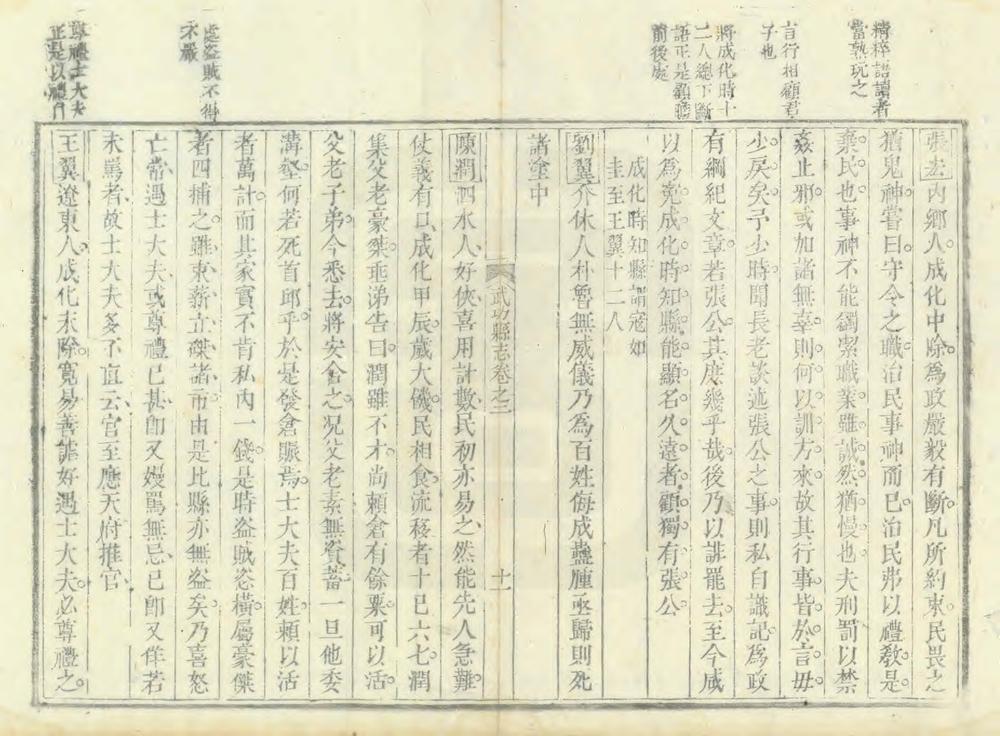 精粹語讀者
當熟玩之
言行相顧君
子也
將成化時十
二人總下斷
語正是顧瞻
前後處
處盜賊不得
不嚴
尊禮士大夫
正是以禮自
張宏內鄉人成化中除爲政嚴毅有斷凡所約束民畏之
猶鬼神嘗曰守令之職治民事神而已治民弗以禮敎是
棄民也事神不能蠲潔職業雖誠然猶慢也夫刑罰以禁
姦止邪或加諸無辜則何以訓方來故其行事皆於言毋
少戾矣予少時聞長老談述張公之事則私自識記爲政
有綱紀文章若張公其庶幾乎哉後乃以誹罷去至今咸
以爲寃成化時知縣能顯名久遠者顧獨有張公
成化時知縣謂寇如
圭至王翼十二人
劉翼介休人朴魯無威儀乃爲百姓侮成蠱腫亟歸則死
諸塗中
武功縣志卷之三
十一
陳潤泗水人好俠喜用計數民初亦易之然能先人急難
仗義有口成化甲辰歲大饑民相食流移者十已六七潤
集父老豪桀垂涕告曰潤雖不才尚賴倉有餘粟可以活
父老子弟今悉去將安食之况父老素無資蓄一旦他委
溝壑何若死首邱乎於是發倉賑焉士大夫百姓賴以活
者萬計而其家實不肯私內一錢是時盜賊恣橫屬豪傑
者四捕之雖束薪立磔諸市由是比縣亦無盜矣乃喜怒
亡常遇士大夫或尊禮已甚卽又嫚罵無忌已卽又佯若
未罵者故士大夫多不直云官至應天府推官
王翼遼東人成化末除寬易善誹好遇士大夫必尊禮之